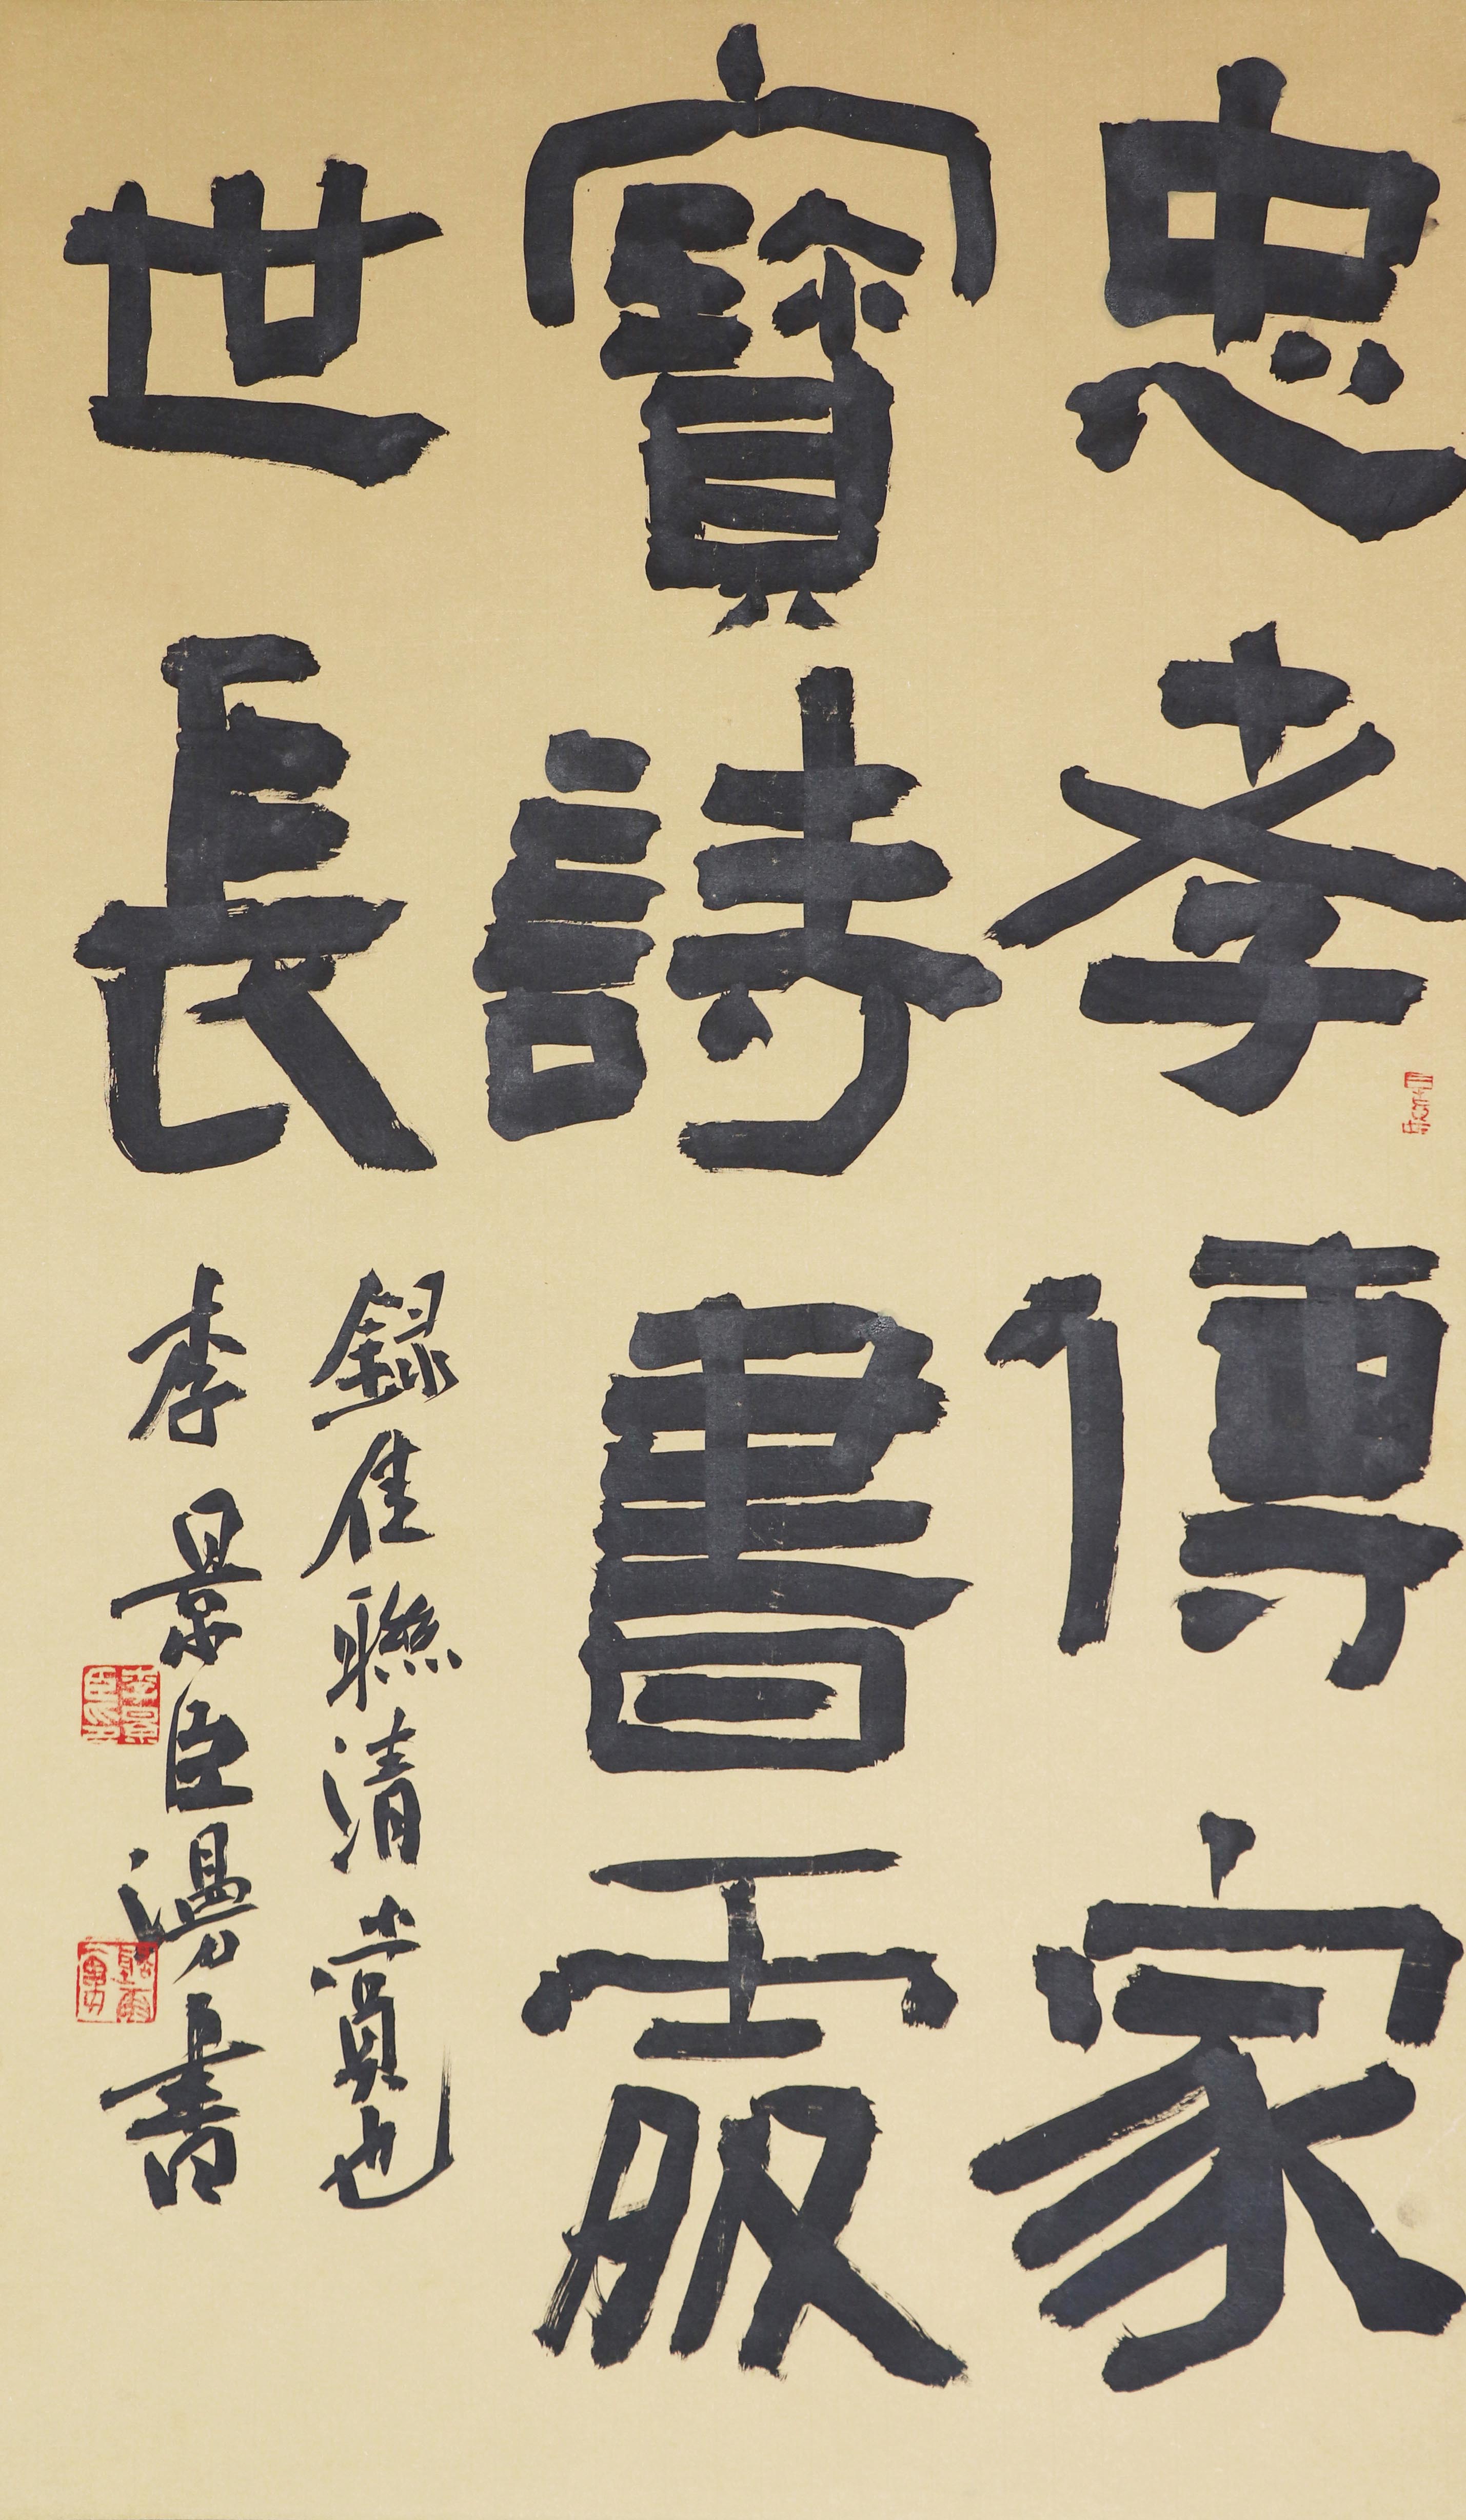 忠孝傳家
寶詩書處
世長
錄佳聯清賞也
李景臣漫書
李景臣印